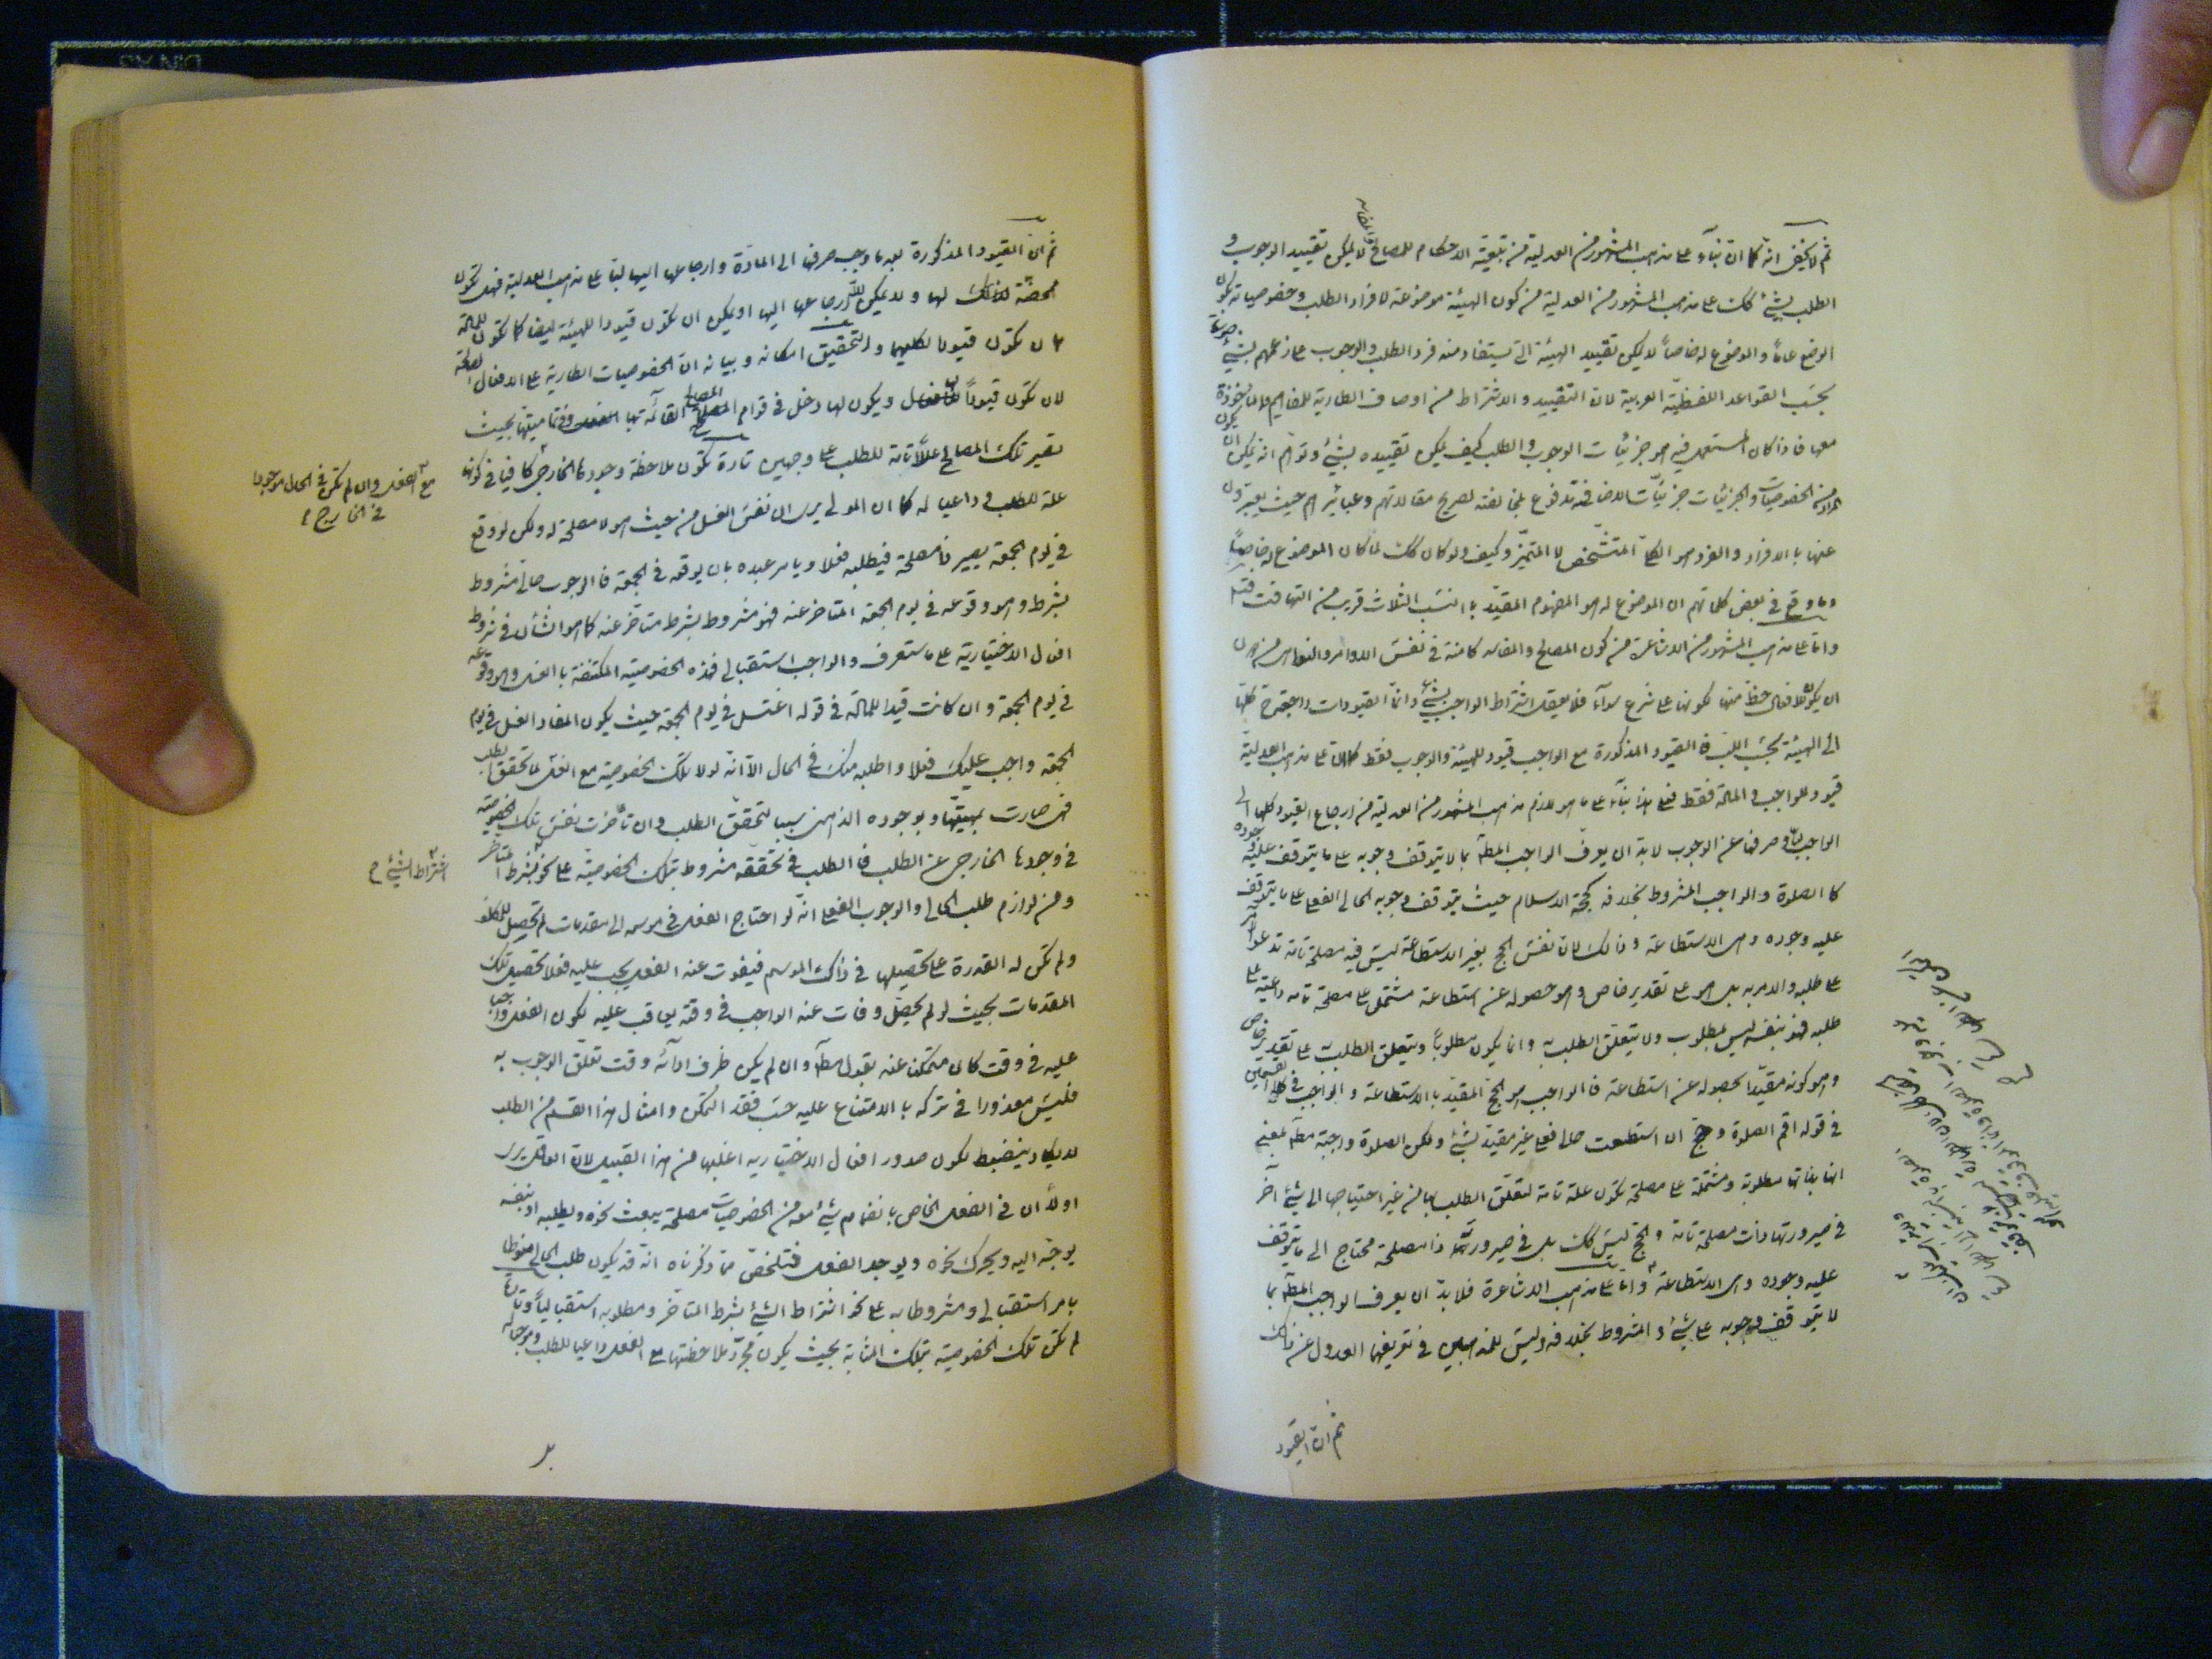 ثم لا يخفى انه كما ان بناء على مذهب المشهور من العدلية من تبعية الاحكام للمصالح والمفاسد لا يمكن تقييد الوجوب و
الطلب بشئ كك على مذهب المشهور من العدلية من كون الهيئة موضوعة لافراد الطلب وخصوصياته بكون
الوضع عاماً والموضوع له خاصاً لا يمكن تقييد الهيئة التى يستفاد منه فرد الطلب والوجوب على زعمهم بشئ
بحسب القواعد اللفظية العربية لان التقييد والاشتراط من اوصاف الطارية للمفاهيم المأخوذة
معها فاذا كان المستعمل فيه هو جزئيات الوجوب والطلب كيف يمكن تقييده بشئ وتوهم انه يمكن ان يكون
المراد من الخصوصيات والجزئيات جزئيات الاضافة مدفوع بمخالفته لصريح مقالاتهم وعبائرهم حيث يعبرون
عنها بالافراد والفرد هو الكلى المتشخص لا المتميز وكيف ولو كان كك لما كان الموضوع له خاصاً
وما وقع فى بعض كلماتهم ان الموضوع له هو المفهوم المقيد بالنسب الثلاث قريب من التهافت
واما على مذهب المشهور من الاشاعرة من كون المصالح والمفاسد كامنة فى نفس الاوامر والنواهى من دون
ان يكون للافعال حظ منها لكونها على شرع سواء فلا يعقل اشتراط الواجب بشئ وانما القيودات راجعة كلها
الى الهيئة بحسب اللب فالقيود المذكورة مع الواجب قيود للهيئة والوجوب فقط كما ان على مذهب العدلية
قيود للواجب والمادة فقط فعلى هذا بناء على ما هو لازم مذهب المشهور من العدلية من ارجاع القيود كلها الى
الواجب لباً وصرفها عن الوجوب لا بد ان يعرف الواجب المطلق بما لا يتوقف وجوبه على ما يتوقف عليه وجوده
كالصلوة والواجب المشروط بخلافه كحجة الاسلام حيث يتوقف وجوبه الحالى الفعلى على ما يتوقف
عليه وجوده وهى الاستطاعة وذلك لان نفس الحج بغير الاستطاعة ليس فيه مصلحة تامة تدعو المولى
على طلبه والامر به بل هو على تقدير خاص وهو حصوله عن استطاعة مشتمل على مصلحة تامة داعية على
طلبه فهو بنفسه ليس بمطلوب ولا يتعلق الطلب به وانما يكون مطلوباً ويتعلق الطلب به على تقدير خاص
وهو كونه مقيداً بحصوله عن استطاعة فالواجب هو الحج المقيد بالاستطاعة والواجب فى كلا القسمين
فى قوله اقم الصلوة وحج ان استطعت حالى فعلى غير مقيد بشئ ولكن الصلوة واجبة مطلقا بمعنى
انها بذاتها مطلوبة ومشتملة على مصلحة تكون علة تامة لتعلق الطلب بها من غير احتياجها الى شئ آخر
فى صيرورتها ذات مصلحة تامة والحج ليس كك بل فى صيرورته ذا مصلحة محتاج الى ما يتوقف
عليه وجوده وهى الاستطاعة واما على مذهب الاشاعرة فلا بد ان يعرف الواجب المطلق بما
لا يتوقف وجوبه على شئ والمشروط بخلافه وليس للمذهبين فى تعريفهما العدول عن ذلك
ثم ان القيود
ثم ان القيود المذكورة بعد ما وجب صرفها الى المادة وارجاعها اليها لباً على مذهب العدلية فهل تكون
محضة لها ولا يمكن ارجاعها اليها او يمكن ان تكون قيودا للهيئة ايضا كما تكون للمادة
بان تكون قيودا لكليهما والتحقيق امكانه وبيانه ان الخصوصيات الطارية على الافعال
لان تكون قيوداً للفعل ويكون لها دخل فى قوام المصالح القائمة بها بحيث
تصير تلك المصالح عللاً تامة للطلب على وجهين تارة تكون ملاحظة وجودها الخارجى كافيا فى كونها
علة للطلب وداعيا له كما ان المولى يرى ان نفس الغسل من حيث هو لا مصلحة له ولكن لو وقع
فى يوم الجمعة يصير ذا مصلحة فيطلبه فعلا ويامر عبده بان يوقعه فى الجمعة فالوجوب حالى مشروط
بشرط وهو وقوعه فى يوم الجمعة المتاخر عنه فهو مشروط بشرط متأخر عنه كما هو الشأن فى شروط
افعال الاختيارية على ما ستعرف والواجب استقبالى فهذه الخصوصية المكتنفة بالغسل وهو وقوعه
فى يوم الجمعة وان كانت قيدا للمادة فى قوله اغتسل فى يوم الجمعة حيث يكون المفاد الغسل فى يوم
الجمعة واجب عليك فعلا واطلبه منك فى الحال الا انه لولا تلك الخصوصية مع الفعل لما تحقق الطلب
فهى صارت بهيئتها وبوجوده الذهنى سببا لتحقق الطلب وان تأخرت نفس تلك الخصوصية
فى وجودها الخارجى عن الطلب فالطلب فى تحققه مشروط بتلك الخصوصية على نحو بشرط المتأخر
ومن لوازم طلب الحالى والوجوب الفعلى انه لو احتاج الفعل فى موسمه الى مقدمات لم تحصل للمكلف
ولم تكن له القدرة على تحصيلها فى ذلك الموسم فيفوت عنه الفعل يجب عليه فعلا تحصيل تلك
المقدمات بحيث لو لم يحصل وفات عنه الواجب فى وقته يعاقب عليه لكون الفعل واجبا
عليه فى وقت كان متمكنا عنه بقول مطلق وان لم يكن ظرف ادائه وقت تعلق الوجوب به
فليس معذورا فى تركه بالامتناع عليه حسب فقد التمكن وامثال هذا القسم من الطلب
لا يكاد ينضبط لكون صدور افعال الاختيارية اغلبها من هذا القبيل لان العاقل يرى
اولاً ان فى الفعل الخاص بانضمام شئ معه من الخصوصيات مصلحة يبعث نحوه ويطلبه او بنفسه
يوجه اليه ويحرك نحوه ويوجد الفعل فتلخص مما ذكرناه انه قد يكون طلب الحالى منوطا
بامر استقبالى ومشروطا به على نحو اشتراط الشئ بشرط المتأخر ومطلوبه استقبالياً وتارة
لم تكن تلك الخصوصية بتلك المثابة بحيث يكون مجرد ملاحظتها مع الفعل داعيا للطلب وموجبا له
مع الفعل وان لم تكن فى الحال موجودا
فى الخارج
اشتراط الشئ